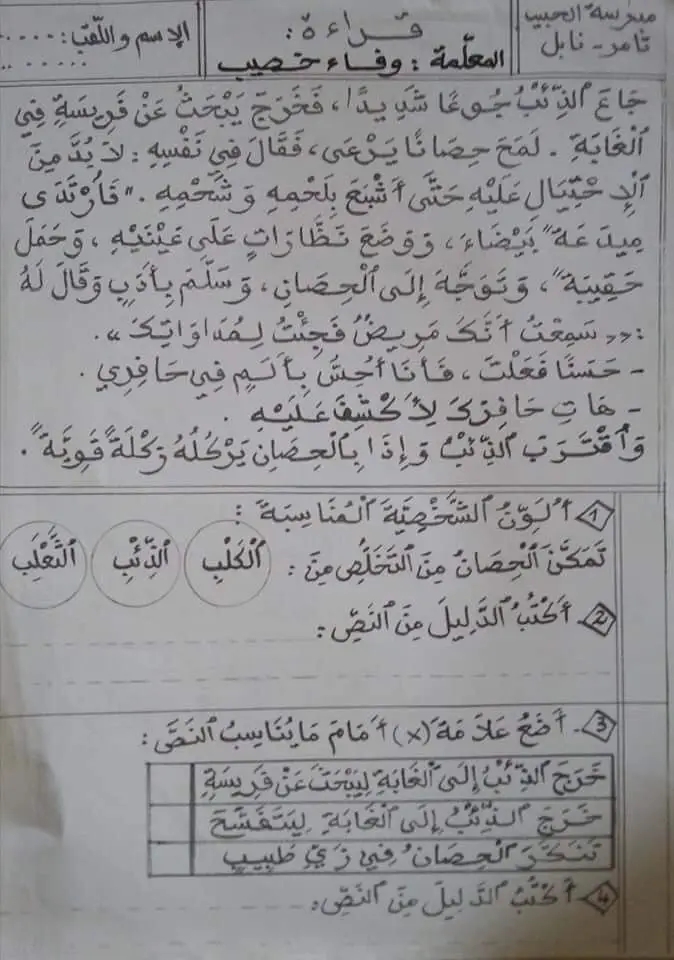 مدرسة الحبيب
ثامر - نابل
قراءة:
المعلّمة: وفاء خصيب
الإسم واللّقب: .....
......
جَاعَ الذِّئْبُ جُوعًا شَدِيدًا، فَخَرَجَ يَبْحَثُ عَنْ فَرِيسَةٍ فِي
الْغَابَةِ. لَمَحَ حِصَانًا يَرْعَى، فَقَالَ فِي نَفْسِهِ: لَا بُدَّ مِنَ
الْإِحْتِيَالِ عَلَيْهِ حَتَّى أَشْبَعَ بِلَحْمِهِ وَشَحْمِهِ." فَارْتَدَى
مِيدَعَةً بَيْضَاءَ، وَوَضَعَ نَظَّارَاتٍ عَلَى عَيْنَيْهِ، وَحَمَلَ
حَقِيبَةً، وَتَوَجَّهَ إِلَى الْحِصَانِ، وَسَلَّمَ بِأَدَبٍ وَقَالَ لَهُ
:«سَمِعْتُ أَنَّكَ مَرِيضٌ فَجِئْتُ لِمُدَاوَاتِكَ».
- حَسَنًا فَعَلْتَ، فَأَنَا أُحِسُّ بِأَلَمٍ فِي حَافِرِي.
- هَاتِ حَافِرَكَ لِأَكْشِفَ عَلَيْهِ.
وَاقْتَرَبَ الذِّئْبُ وَإِذَا بِالْحِصَانِ يَرْكُلُهُ رَكْلَةً قَوِيَّةً.
1- أُلَوِّنُ الشَّخْصِيَّةَ الْمُنَاسِبَةَ:
تَمَكَّنَ الْحِصَانُ مِنَ التَّخَلُّصِ مِنَ: الْكَلْبِ الذِّئْبِ الثَّعْلَبِ
2- أَكْتُبُ الدَّلِيلَ مِنَ النَّصِّ:
3- أَضَعُ عَلَامَةَ (x) أَمَامَ مَا يُنَاسِبُ النَصَّ:
خَرَجَ الذِّئْبُ إِلَى الْغَابَةِ لِيَبْحَثَ عَنْ فَرِيسَةٍ
خَرَجَ الذِّئْبُ إِلَى الْغَابَةِ لِيَتَفَسَّحَ
تَنَكَّرَ الْحِصَانُ فِي زَيِّ طَبِيبٍ
4- أَكْتُبُ الدَّلِيلَ مِنَ النَصِّ: